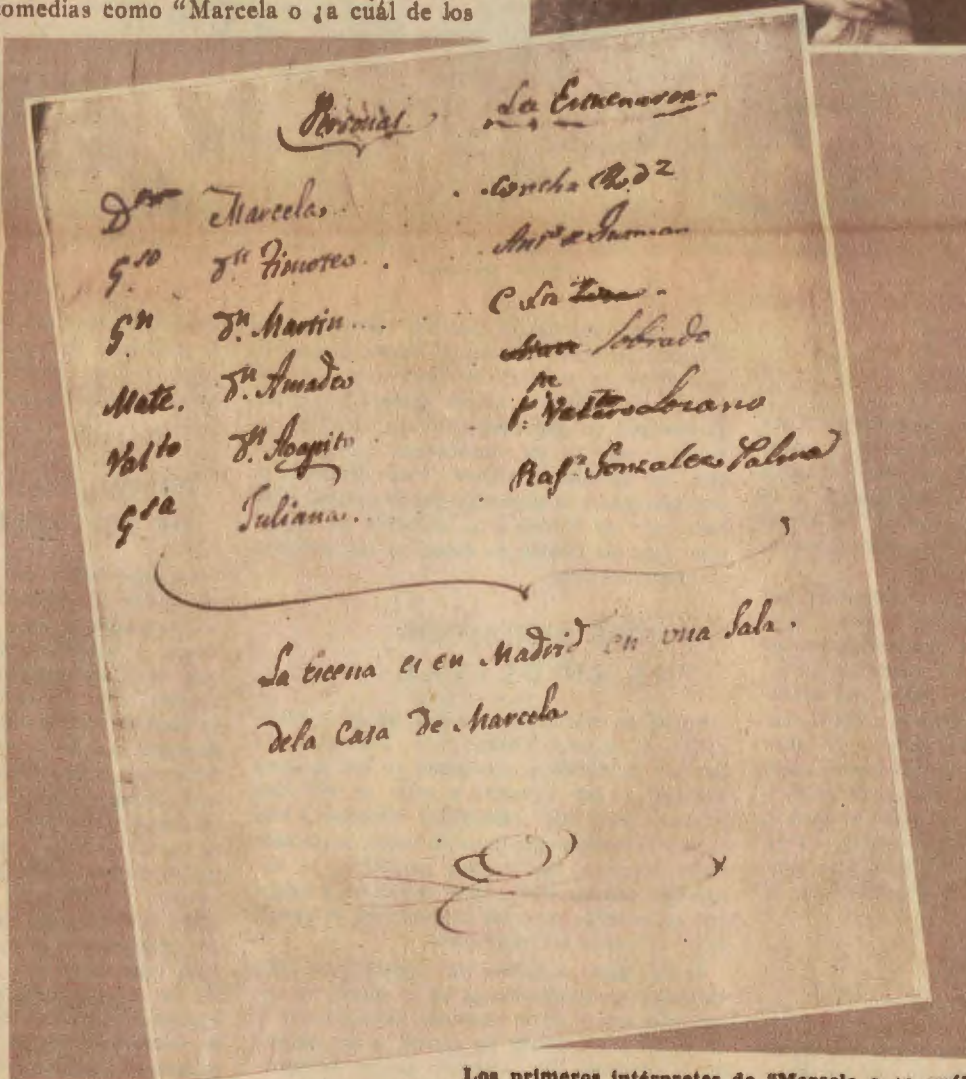 comedias como "Marcela o ¿a cuál de los
Personas La Estrenaron
Marcela Concha Rdz
Gso Dn Timoteo Anto de Guzman
Gn Dn Martin
Mate. Dn Amadeo Sobrado
Valto Dn Agapito Lozano
Gsa Juliana Rafa Gonzalez Palma
La escena es en Madrid en una Sala.
dela Casa de Marcela
Los primeros intérpretes de "Marcela